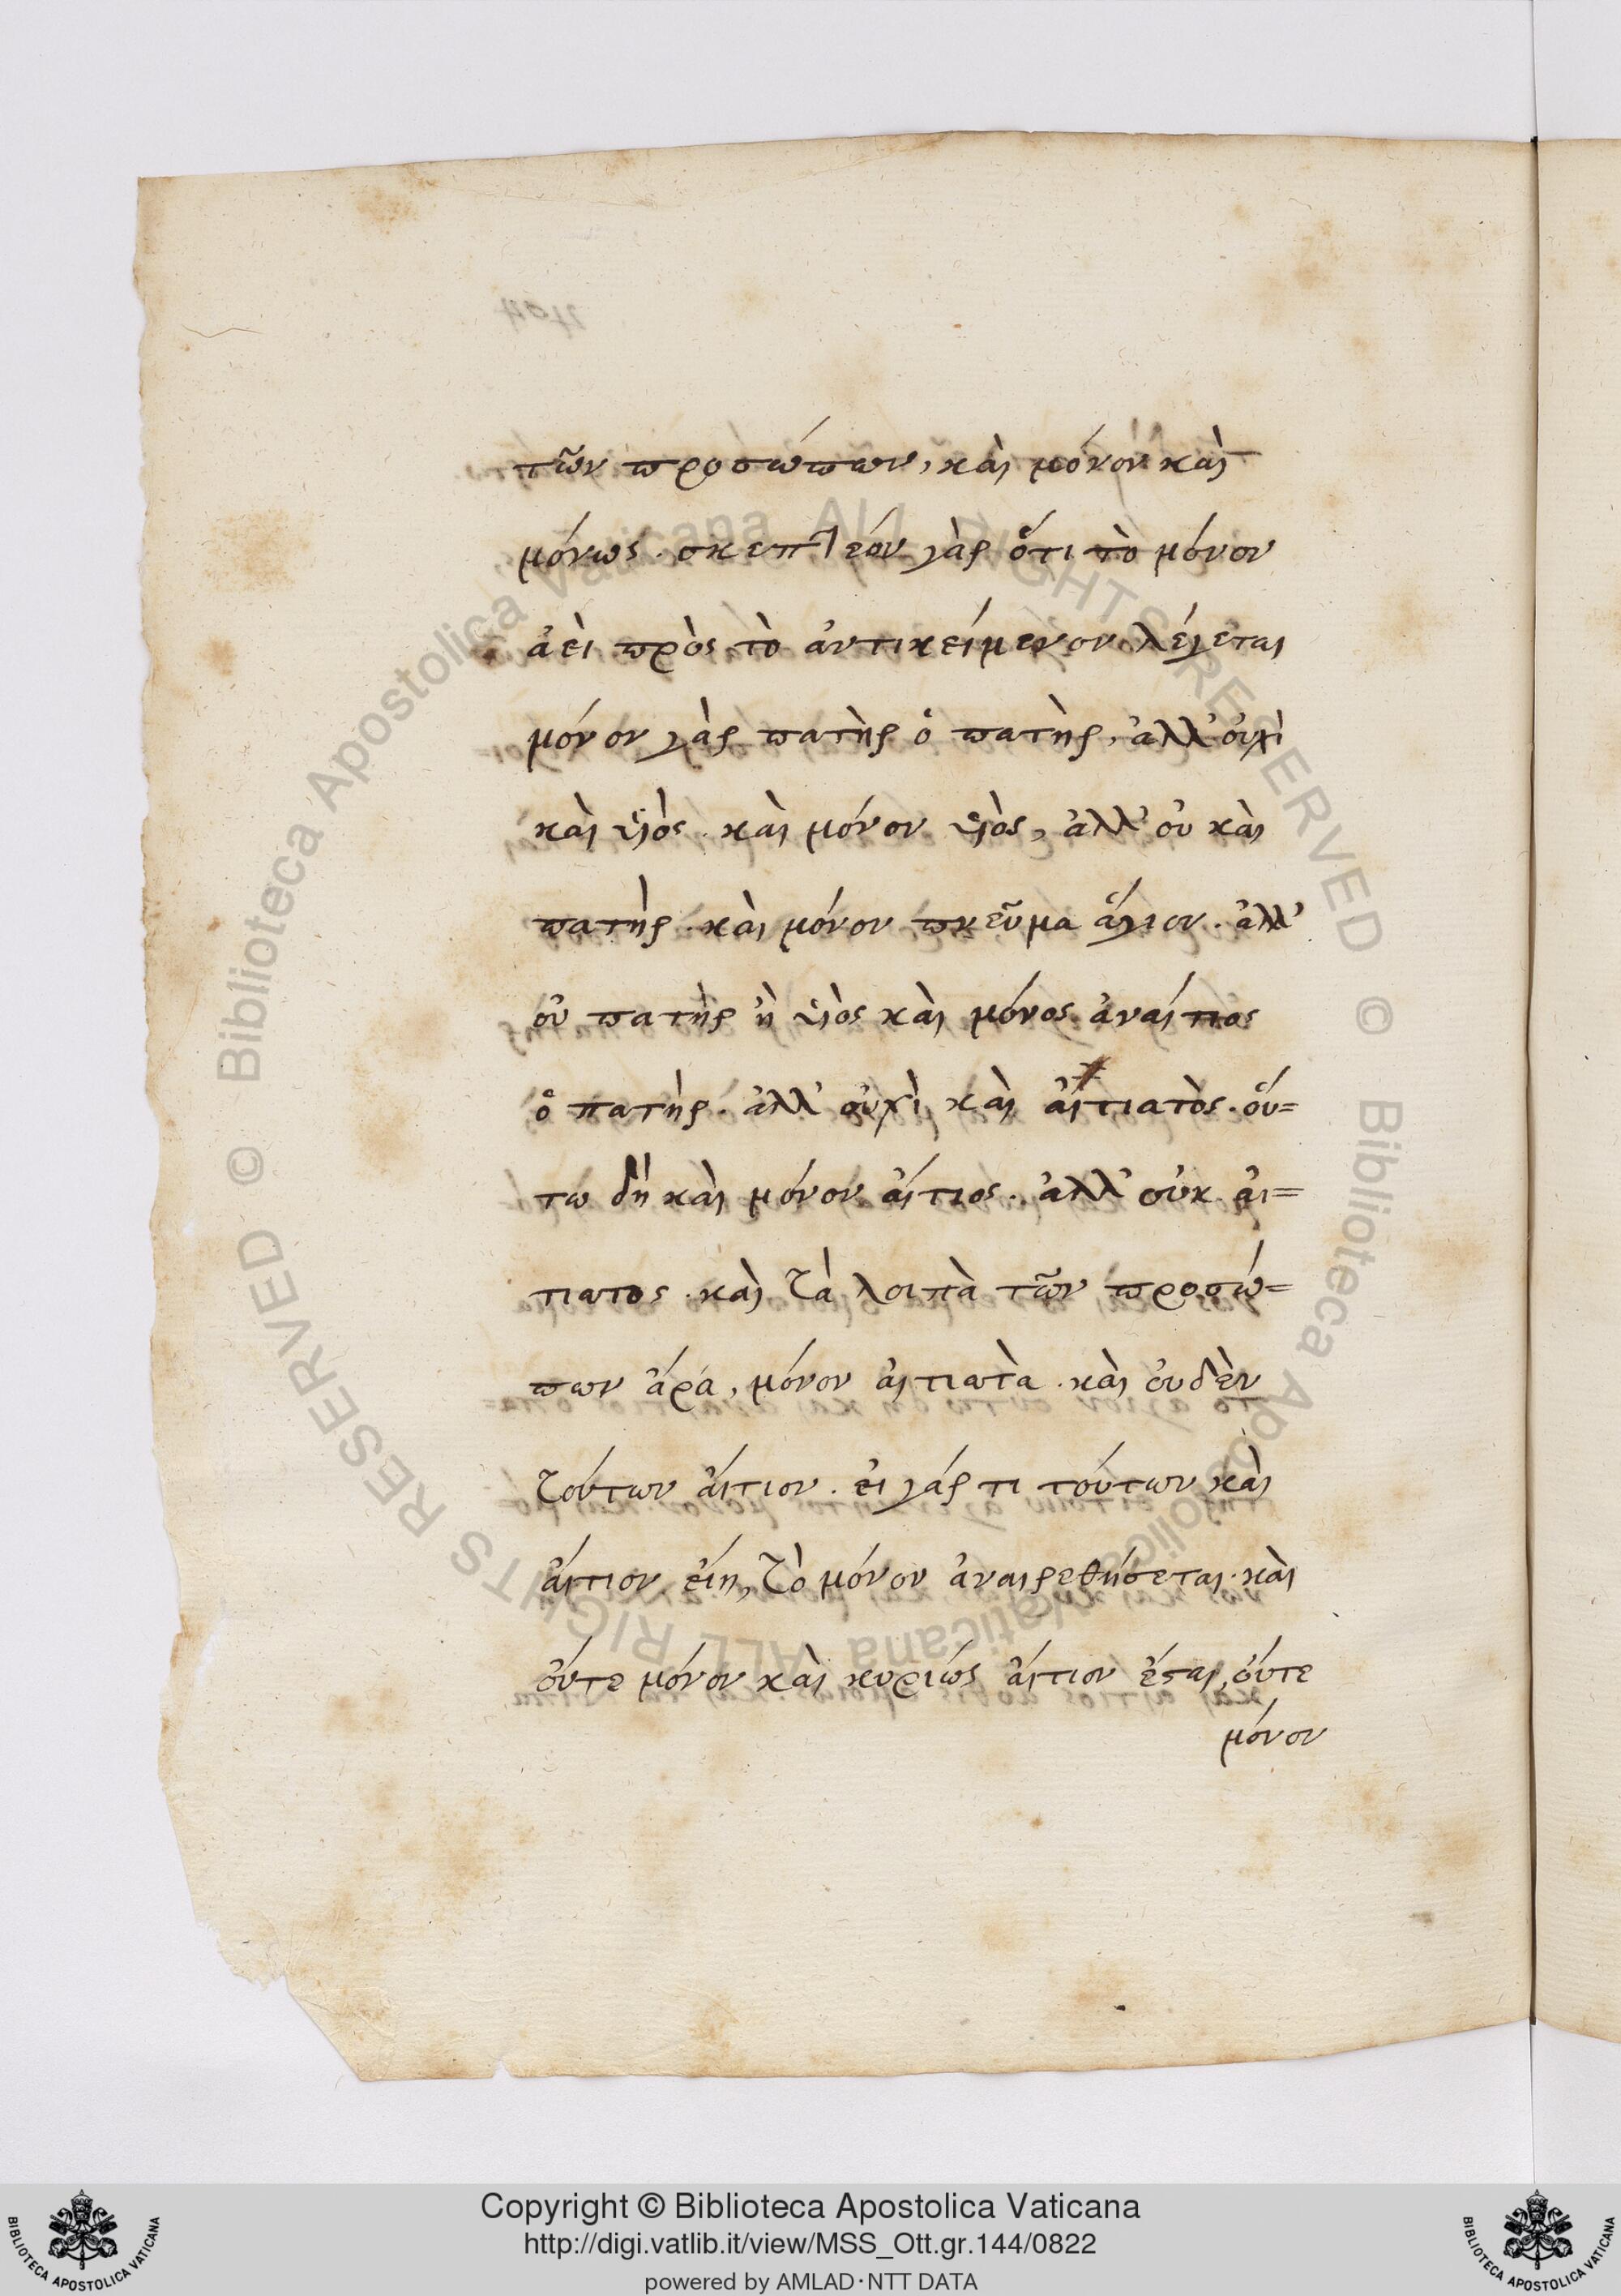 τῶν προσώπων, καὶ μόνον καὶ
μόνως. σκεπτέον γὰρ ὅτι τὸ μόνον
ἀεὶ πρὸς τὸ ἀντικείμενον λέγεται
μόνον γὰρ πατὴρ ὁ πατὴρ, ἀλλ' οὐχὶ
καὶ υἱὸς. καὶ μόνον υἱὸς, ἀλλ' οὐ καὶ
πατὴρ. καὶ μόνον πνεῦμα ἅγιον. ἀλλ'
οὐ πατὴρ ἢ υἱὸς καὶ μόνος ἀναίτιος
ὁ πατὴρ. ἀλλ' οὐχὶ καὶ αἰτιατὸς. οὕ=
τω δὴ καὶ μόνον αἴτιος. ἀλλ' οὐκ αἰ=
τιατος. καὶ τὰ λοιπὰ τῶν προσώ=
πων ἄρα, μόνον αἰτιατὰ. καὶ οὐδὲν
τούτων αἴτιον. εἰ γάρ τι τούτων καὶ
αἴτιον εἴη, τὸ μόνον ἀναιρεθήσεται. καὶ
οὔτε μόνον καὶ κυρίως αἴτιον ἔσται, οὔτε
μόνον
Biblioteca Apostolica Vaticana ALL RIGHTS RESERVED © Biblioteca Apostolica Vaticana ALL RIGHTS RESERVED ©
Copyright © Biblioteca Apostolica Vaticana
http://digi.vatlib.it/view/MSS_Ott.gr.144/0822
powered by AMLAD·NTT DATA
BIBLIOTECA APOSTOLICA VATICANA
BIBLIOTECA APOSTOLICA VATICANA